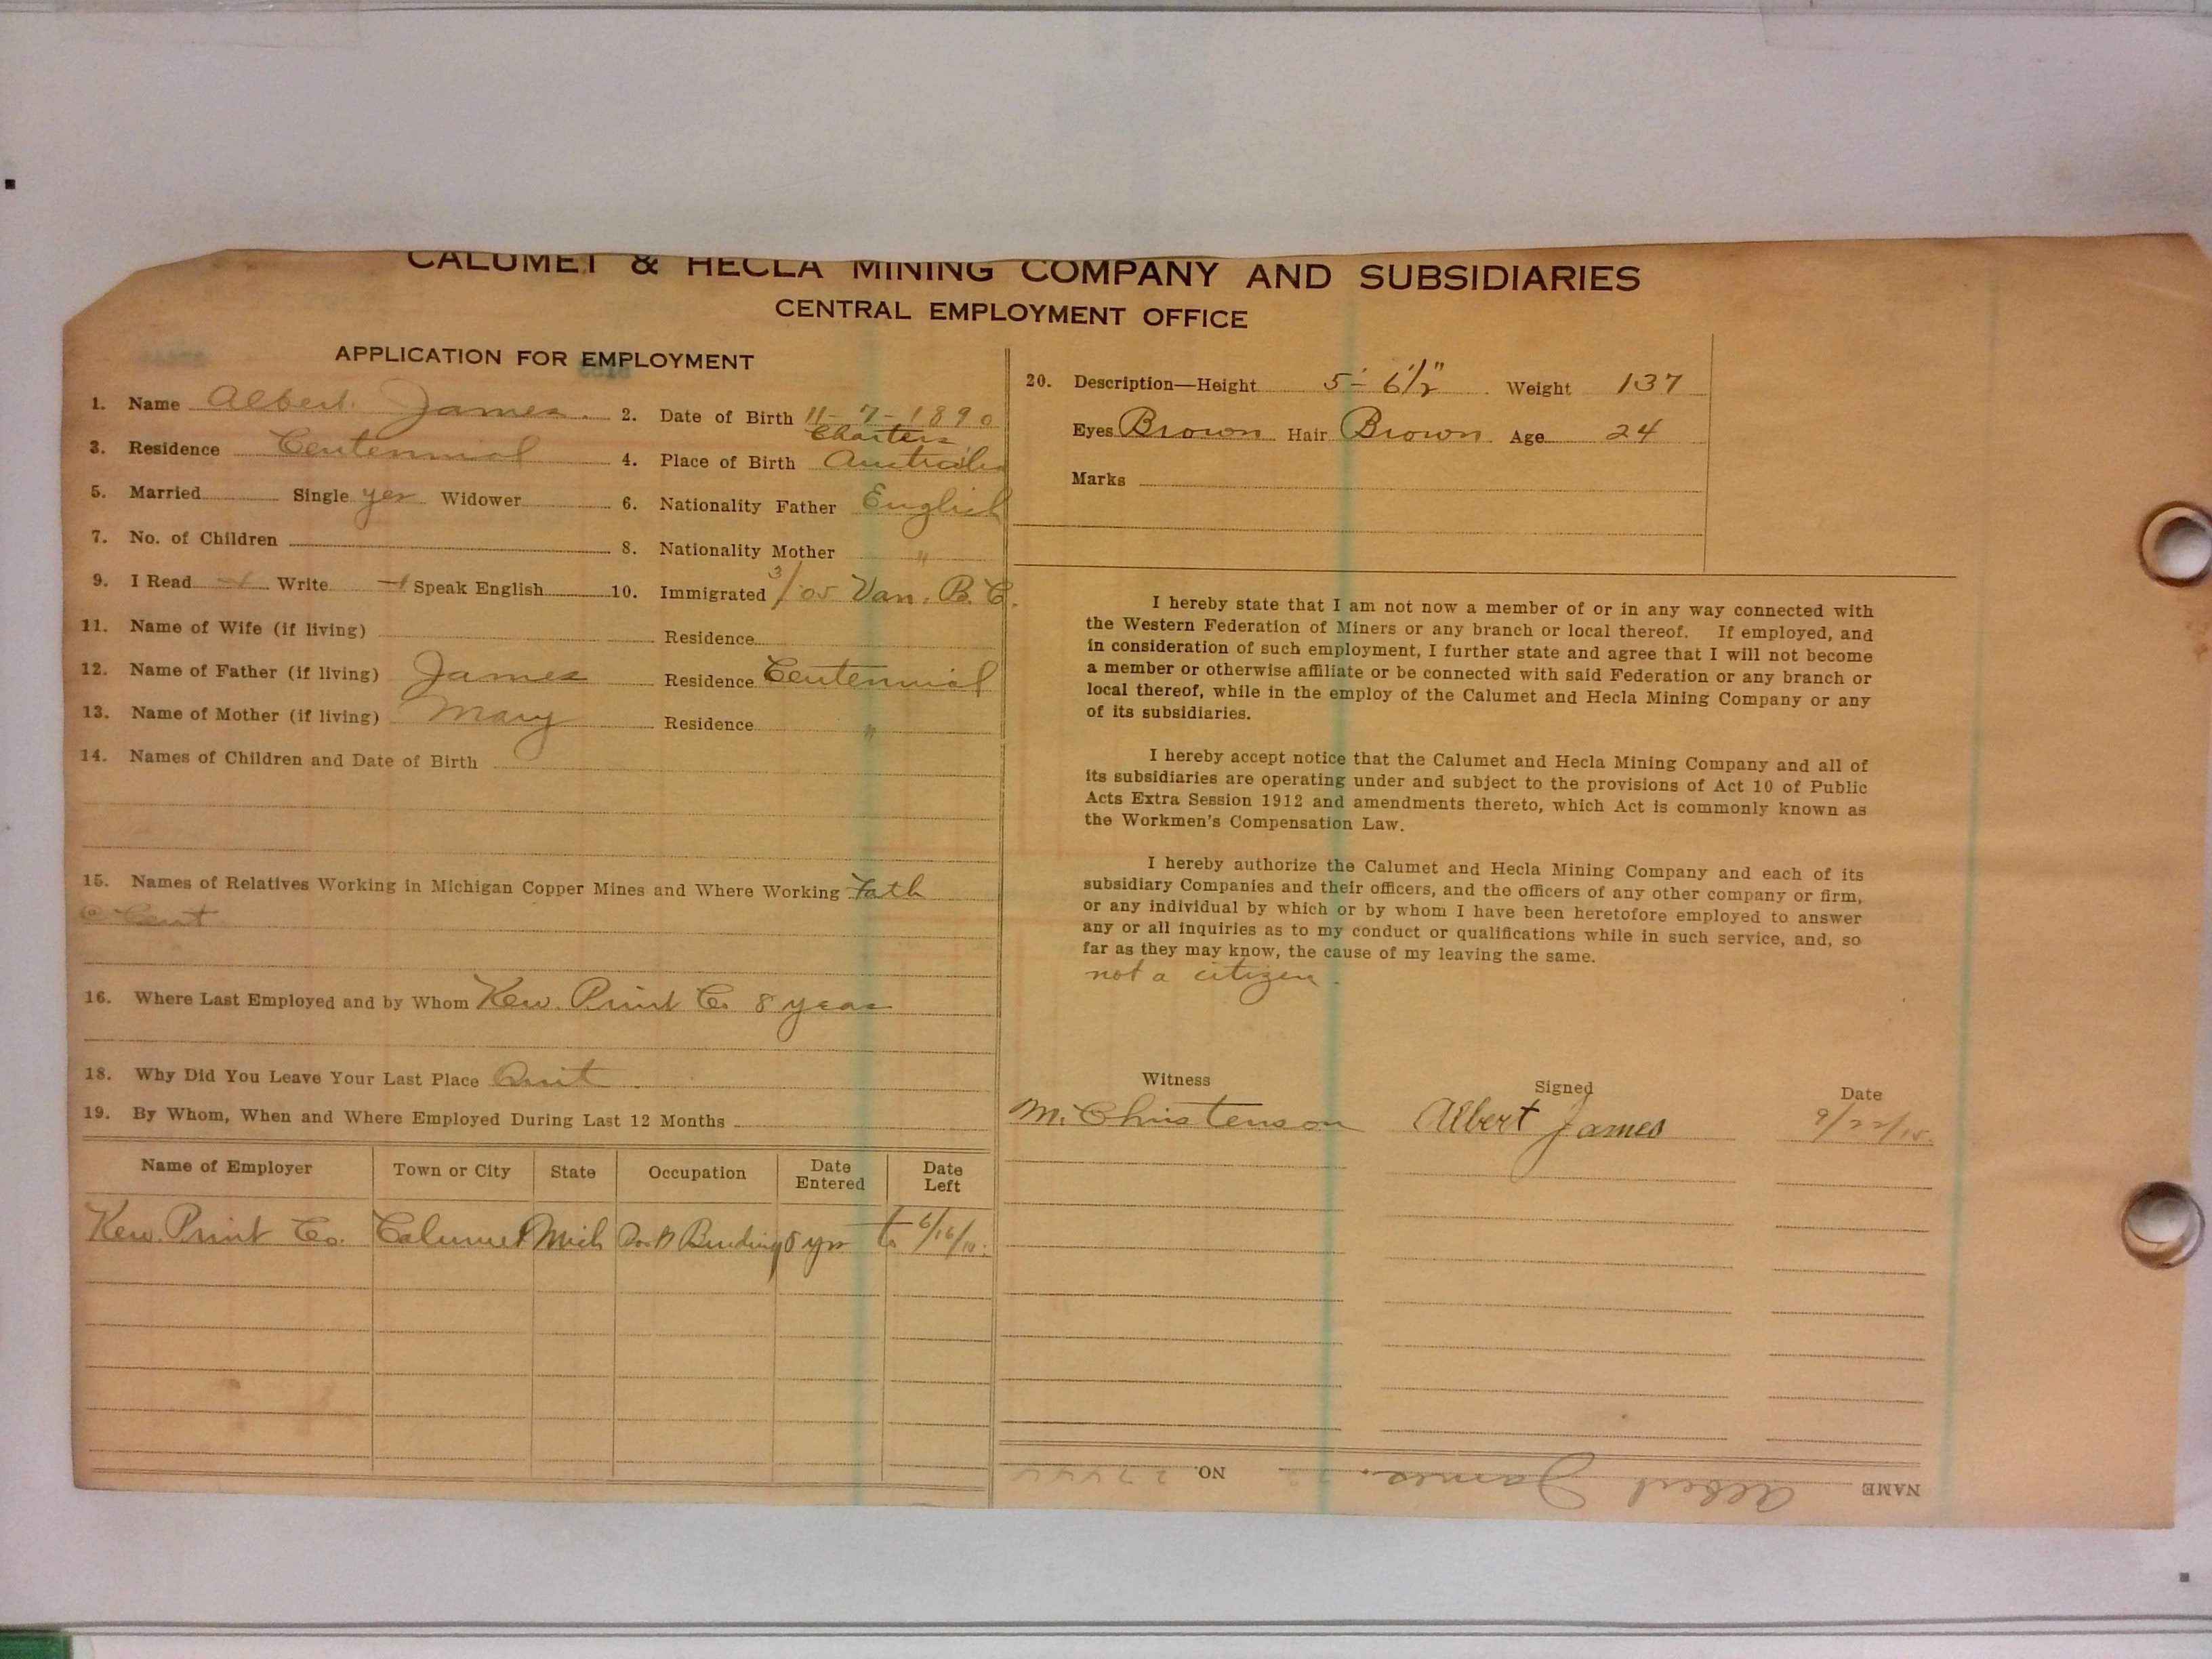 CALUMET & HECLA MINING COMPANY AND SUBSIDIARIES
CENTRAL EMPLOYMENT OFFICE
APPLICATION FOR EMPLOYMENT
1. Name Albert James. 2. Date of Birth 11-7-1890
3. Residence Centennial 4. Place of Birth Charters Australia
5. Married Single yes Widower 6. Nationality Father English
7. No. of Children 8. Nationality Mother "
9. I Read Write Speak English 10. Immigrated 3/05 Van. B.C.
11. Name of Wife (if living) Residence
12. Name of Father (if living) James Residence Centennial
13. Name of Mother (if living) Mary Residence "
14. Names of Children and Date of Birth
15. Names of Relatives Working in Michigan Copper Mines and Where Working Fath
@ Cent.
16. Where Last Employed and by Whom Kew. Print Co. 8 years
18. Why Did You Leave Your Last Place Quit
19. By Whom, When and Where Employed During Last 12 Months
Name of Employer Town or City State Occupation Date Entered Date Left
Kew. Print Co. Calumet Mich Binding 8 yrs to 6/16/15.
20. Description—Height 5'-6 1/2" Weight 137
Eyes Brown Hair Brown Age 24
Marks
I hereby state that I am not now a member of or in any way connected with
the Western Federation of Miners or any branch or local thereof. If employed, and
in consideration of such employment, I further state and agree that I will not become
a member or otherwise affiliate or be connected with said Federation or any branch or
local thereof, while in the employ of the Calumet and Hecla Mining Company or any
of its subsidiaries.
I hereby accept notice that the Calumet and Hecla Mining Company and all of
its subsidiaries are operating under and subject to the provisions of Act 10 of Public
Acts Extra Session 1912 and amendments thereto, which Act is commonly known as
the Workmen's Compensation Law.
I hereby authorize the Calumet and Hecla Mining Company and each of its
subsidiary Companies and their officers, and the officers of any other company or firm,
or any individual by which or by whom I have been heretofore employed to answer
any or all inquiries as to my conduct or qualifications while in such service, and, so
far as they may know, the cause of my leaving the same.
not a citizen.
Witness Signed Date
M. Christenson Albert James 9/22/15.
NAME Albert James. NO.